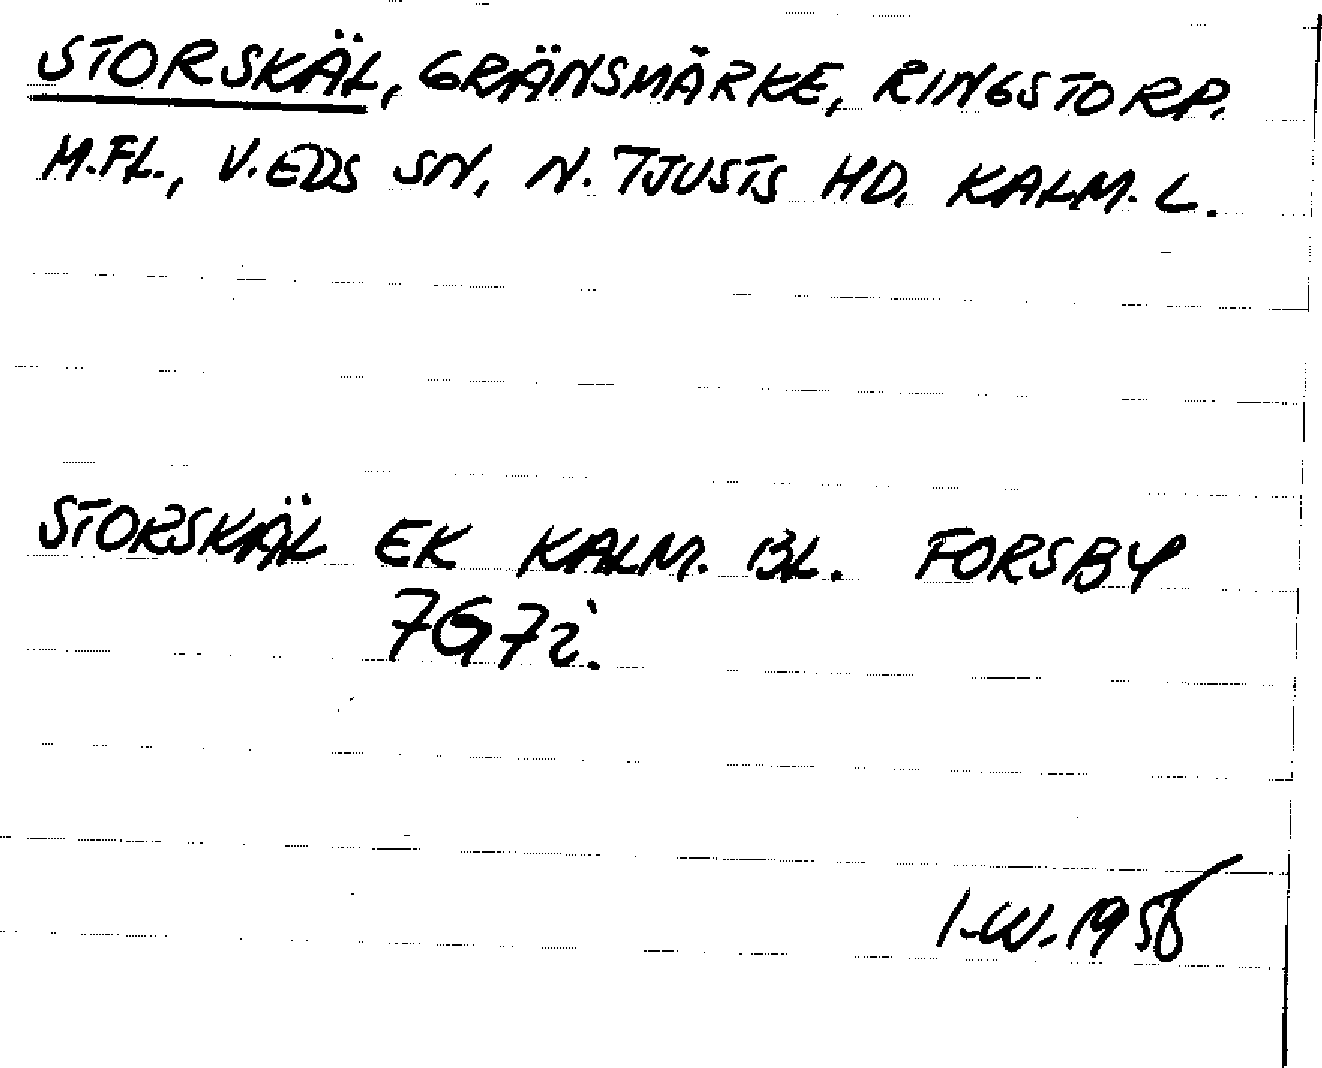 STORSKÄL, GRÄNSMÄRKE, RINGSTORP.
M.FL., V.EDS SN, N. TJUSTS HD. KALM. L.
STORSKÄL EK KALM. BL. FORSBY
7G7i.
I.W. 1958